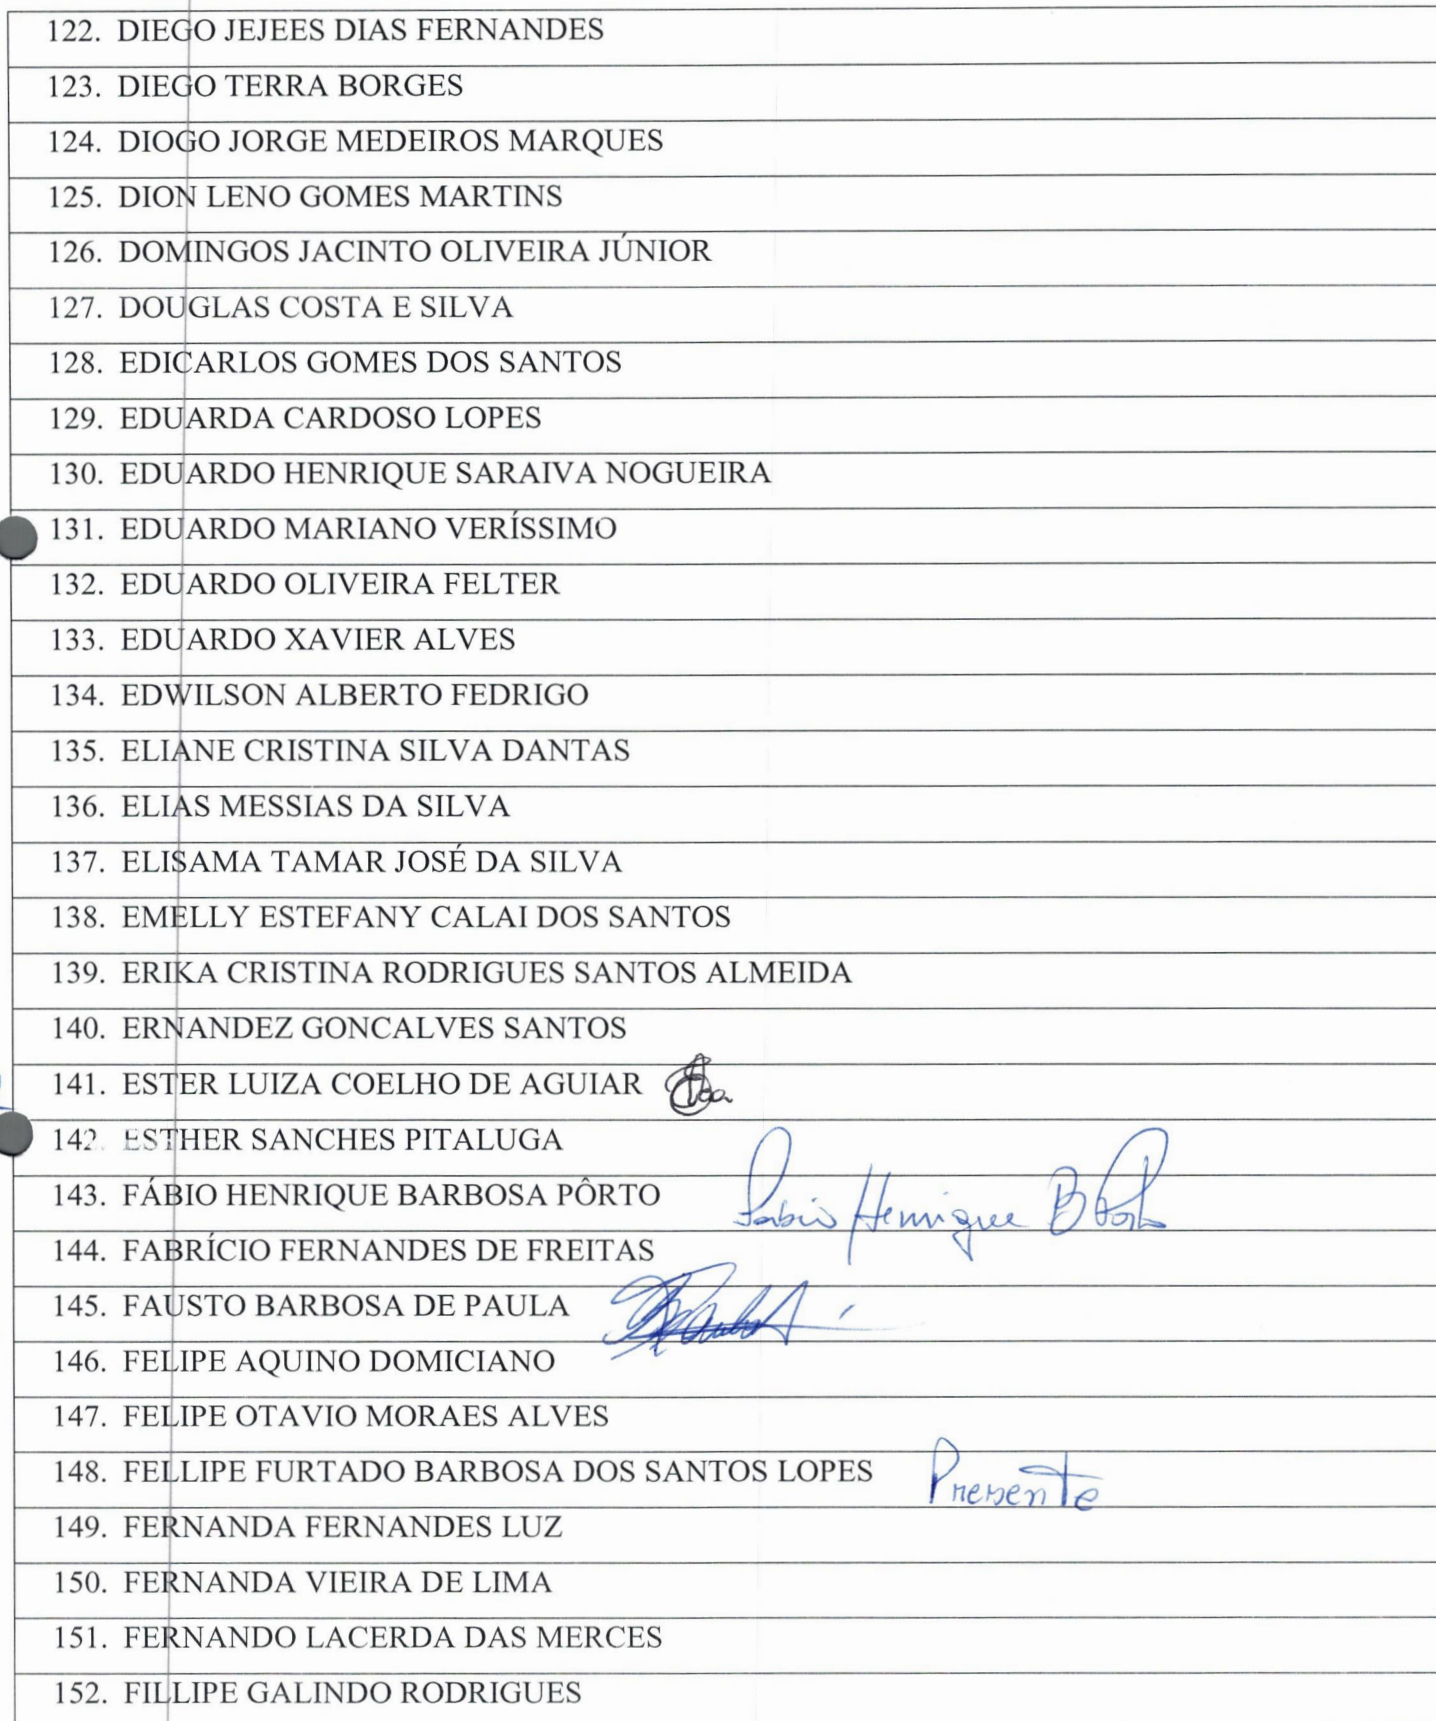 122. DIEGO JEJEES DIAS FERNANDES
123. DIEGO TERRA BORGES
124. DIOGO JORGE MEDEIROS MARQUES
125. DION LENO GOMES MARTINS
126. DOMINGOS JACINTO OLIVEIRA JÚNIOR
127. DOUGLAS COSTA E SILVA
128. EDICARLOS GOMES DOS SANTOS
129. EDUARDA CARDOSO LOPES
130. EDUARDO HENRIQUE SARAIVA NOGUEIRA
131. EDUARDO MARIANO VERÍSSIMO
132. EDUARDO OLIVEIRA FELTER
133. EDUARDO XAVIER ALVES
134. EDWILSON ALBERTO FEDRIGO
135. ELIANE CRISTINA SILVA DANTAS
136. ELIAS MESSIAS DA SILVA
137. ELISAMA TAMAR JOSÉ DA SILVA
138. EMELLY ESTEFANY CALAI DOS SANTOS
139. ERIKA CRISTINA RODRIGUES SANTOS ALMEIDA
140. ERNANDEZ GONCALVES SANTOS
141. ESTER LUIZA COELHO DE AGUIAR
142. ESTHER SANCHES PITALUGA
143. FÁBIO HENRIQUE BARBOSA PÔRTO Fabio Henrique B Porto
144. FABRÍCIO FERNANDES DE FREITAS
145. FAUSTO BARBOSA DE PAULA
146. FELIPE AQUINO DOMICIANO
147. FELIPE OTAVIO MORAES ALVES
148. FELLIPE FURTADO BARBOSA DOS SANTOS LOPES Presente
149. FERNANDA FERNANDES LUZ
150. FERNANDA VIEIRA DE LIMA
151. FERNANDO LACERDA DAS MERCES
152. FILLIPE GALINDO RODRIGUES